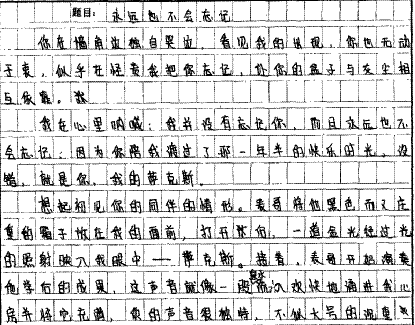 题目：永远也不会忘记
你在墙角边独自哭泣，看见我的出现，你也无动
于衷，似乎在怪责我把你忘记，让你的盒子与灰尘相
与依靠。
我在心里呐喊：我并没有忘记你，而且永远也不
会忘记；因为你陪我渡过了那一年半的快乐时光。没
错，就是你，我的萨克斯。
想起初见你的同伴的情形。表哥将他黑色而又庄
重的箱子放在我的面前，打开 一道金光经过光
的照射映入我眼中——萨克斯。接着，表哥开始演奏
他学有的成果，这声音就像一 泉水欢快地涌进我心
房并悟空在 的声音很独特，不似大号的沉重